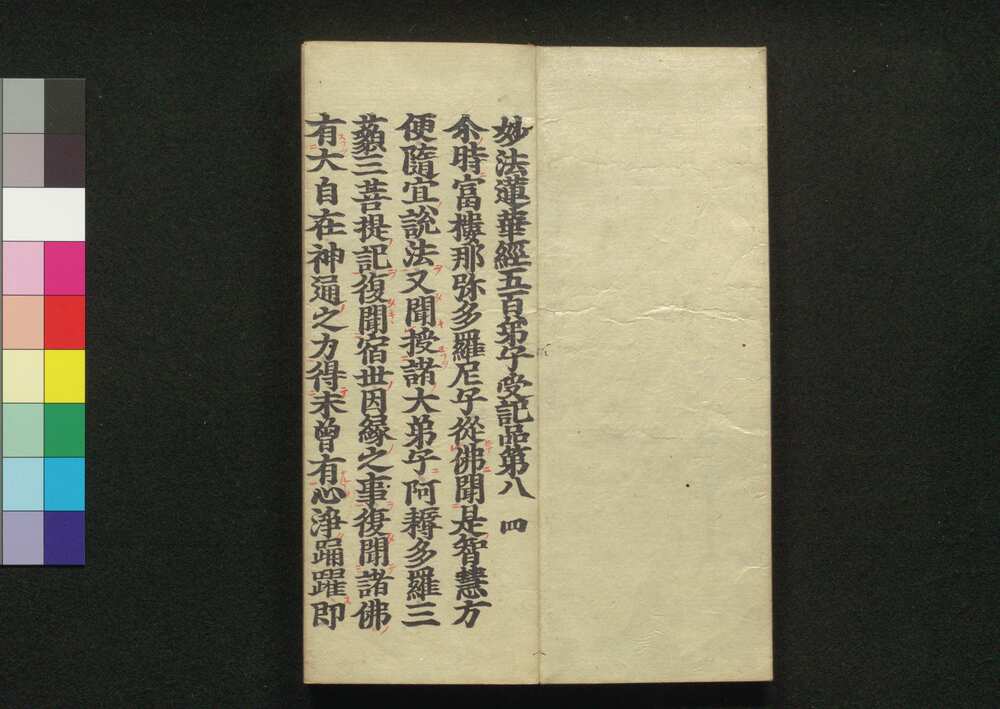 妙法蓮華經五百弟子受記品第八 四
尒時富樓那弥多羅尼子從佛聞是智慧方
便隨宜說法又聞授諸大弟子阿耨多羅三
藐三菩提記復聞宿世因緣之事復聞諸佛
有大自在神通之力得未曾有心淨踊躍即